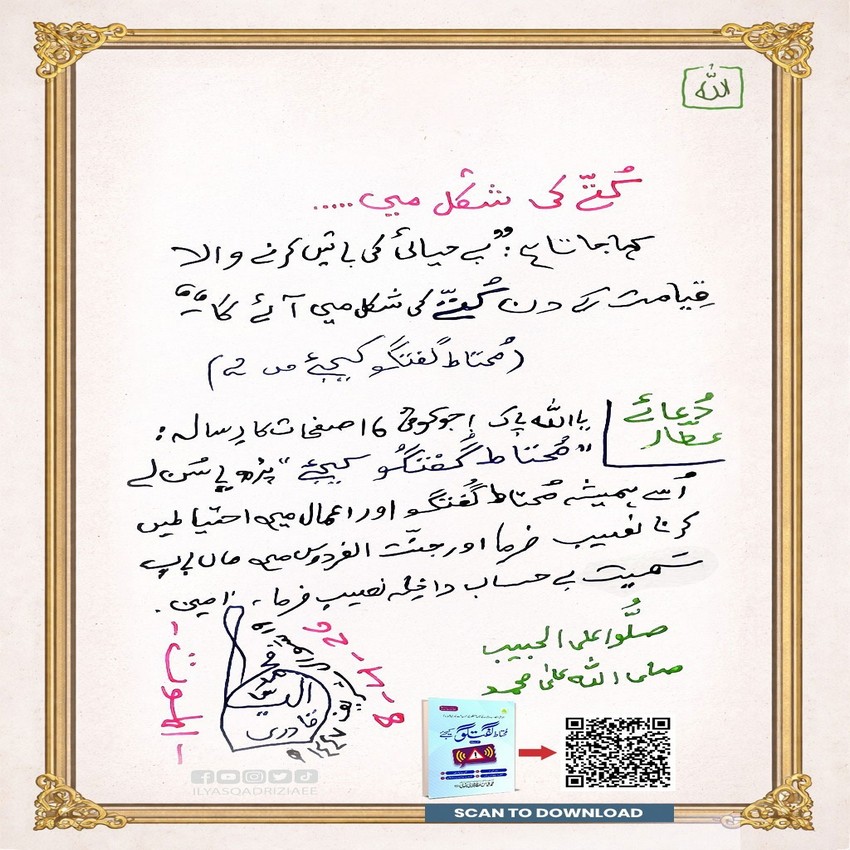 اللہ
کُتّے کی شکل میں.....
کہا جاتا ہے: ”بے حیائی کی باتیں کرنے والا
قِیامت کے دن کُتّے کی شکل میں آئے گا“
(مُحتاط گفتگو کیجئے ص
دُعائے عطّار
یا اللہ پاک! جو کوئی 16 صفحات کا رِسالہ:
”مُحتاط گُفتگو کیجئے“ پڑھ یا سُن لے
اُسے ہمیشہ مُحتاط گُفتگو اور اعمال میں احتیاطیں
کرنا نصیب فرما اور جنّت الفردوس میں ماں باپ
سَمیت بے حساب داخِلہ نصیب فرما، اٰمین.
صلُّوا علی الحبیب
صلی اللہ علٰی محمد
-الموت-
محمد الیاس قادری
محتاط گفتگو کیجئے
ILYASQADRIZIAEE
SCAN TO DOWNLOAD